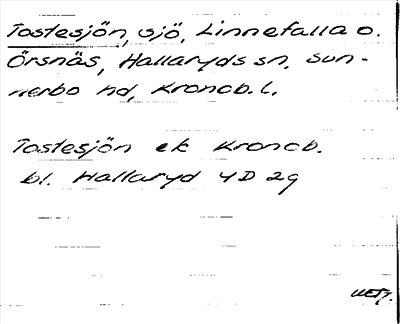 Tostesjön, sjö, Linnefalla o.
Örsnäs, Hallaryds sn. Sun-
nerbo hd, Kronob. l.
Tostesjön ek Kronob.
bl. Hallaryd 4D 2g